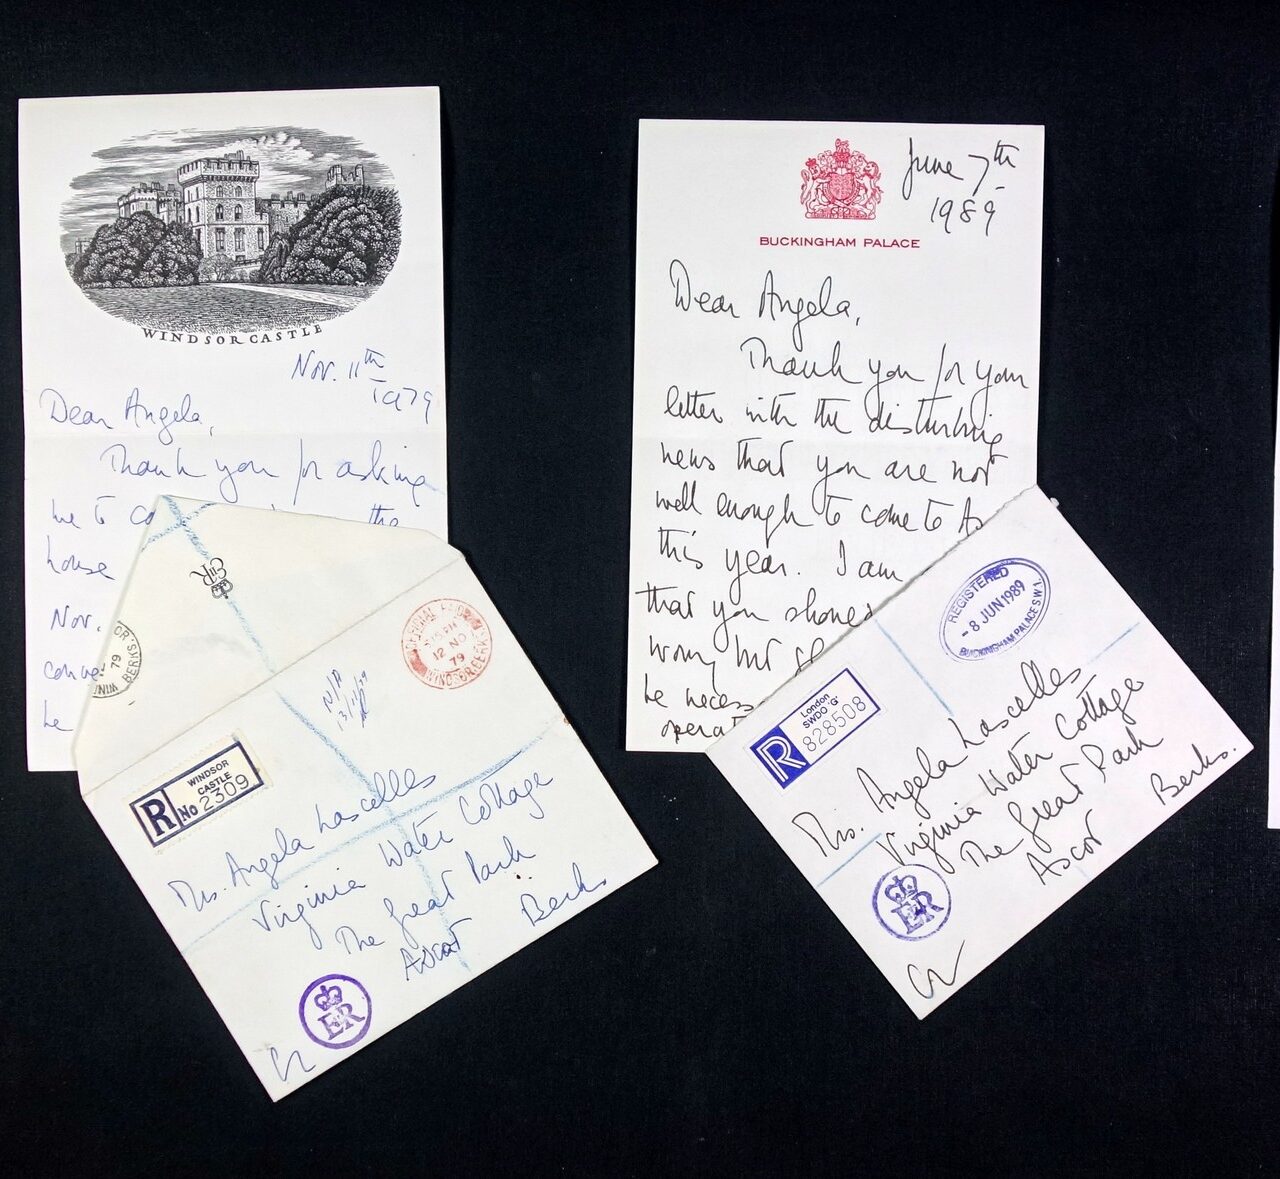 WINDSOR CASTLE
Nov. 11th
1979
Dear Angela,
Thank you for asking
me to co the
house
Nov.
conve
he
EIIR
OR.
79
WIN BERKS
OFFICIAL PAID
12 NO
79
WINDSOR BERKS
N/A
WINDSOR
CASTLE
R No 2309
Mrs. Angela Lascelles
Virginia Water Cottage
The Great Park
Ascot Berks
EIIR
BUCKINGHAM PALACE
June 7th
1989
Dear Angela,
Thank you for your
letter with the disturbing
news that you are not
well enough to come to As
this year. I am
that you should
worry but
be necess
opera
REGISTERED
- 8 JUN 1989
BUCKINGHAM PALACE S.W.1.
R London
SWDO 'G'
828508
Mrs. Angela Lascelles
Virginia Water Cottage
The Great Park
Ascot Berks.
EIIR